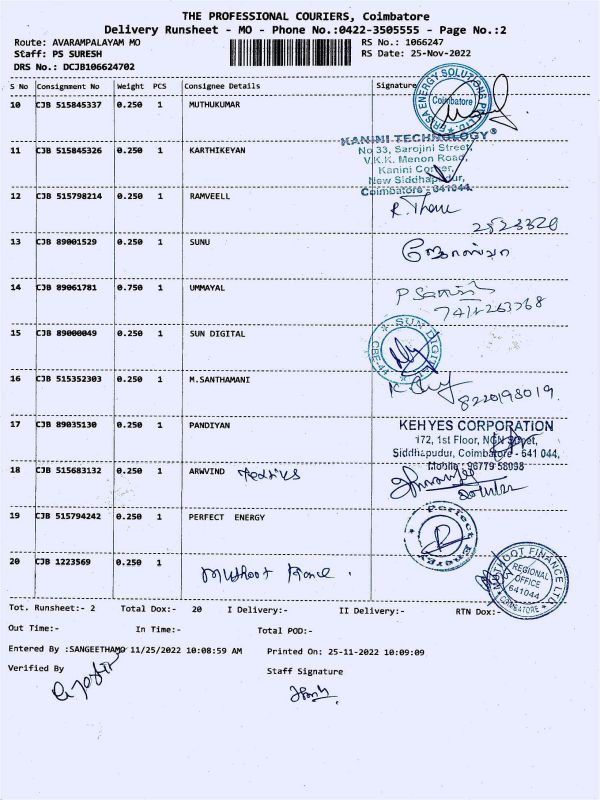 THE PROFESSIONAL COURIERS, Coimbatore
Delivery Runsheet - MO - Phone No.:0422-3505555 - Page No.:2
Route: AVARAMPALAYAM MO RS No.: 1066247
Staff: PS SURESH RS Date: 25-Nov-2022
DRS No.: DCJB106624702
S No Consignment No Weight PCS Consignee Details Signature
10 CJB 515845337 0.250 1 MUTHUKUMAR
Coimbatore
11 CJB 515845326 0.250 1 KARTHIKEYAN
KANINI TECHNOLOGY
No 33, Sarojini Street,
V.K.K. Menon Road,
Kanini Corner,
New Siddhapudur,
Coimbatore - 641044.
12 CJB 515798214 0.250 1 RAMVEELL
2523320
13 CJB 89001529 0.250 1 SUNU
14 CJB 89061781 0.750 1 UMMAYAL
15 CJB 89000049 0.250 1 SUN DIGITAL
SUN DIGITAL
CBE-44
16 CJB 515352303 0.250 1 M.SANTHAMANI
8220198019.
17 CJB 89035130 0.250 1 PANDIYAN
KEHYES CORPORATION
172, 1st Floor, NGN Street,
Siddhapudur, Coimbatore - 641 044.
Mobile : 96779 58098
18 CJB 515683132 0.250 1 ARWVIND
19 CJB 515794242 0.250 1 PERFECT ENERGY
Perfect Energy
20 CJB 1223569 0.250 1
MUTHOOT FINANCE LTD.
REGIONAL
OFFICE
641044
COIMBATORE
Tot. Runsheet:- 2 Total Dox:- 20 I Delivery:- II Delivery:- RTN Dox:-
Out Time:- In Time:- Total POD:-
Entered By :SANGEETHAMO 11/25/2022 10:08:59 AM Printed On: 25-11-2022 10:09:09
Verified By Staff Signature